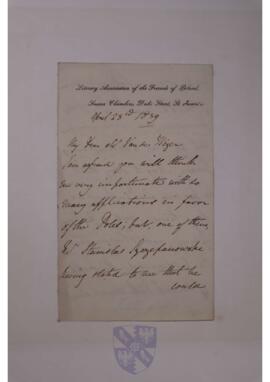 Literary Association of the Friends of Poland
Sussex Chambers, Duke Street, St James's
April 23rd 1839
My dear Mr Van de Weyer
I am afraid you will think
me very importunate with so
many applications in favor
of the Poles; but, one of them,
Mr Stanislas
having stated to me that he
could